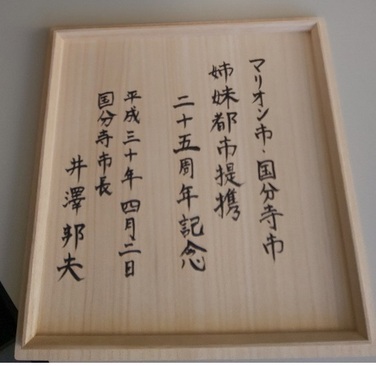 マリオン市・国分寺市
姉妹都市提携
二十五周年記念
平成三十年四月二日
国分寺市長
井澤邦夫